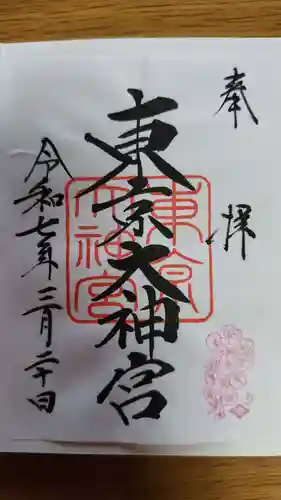 奉拝
東京大神宮
令和七年三月二十日
東京大神宮